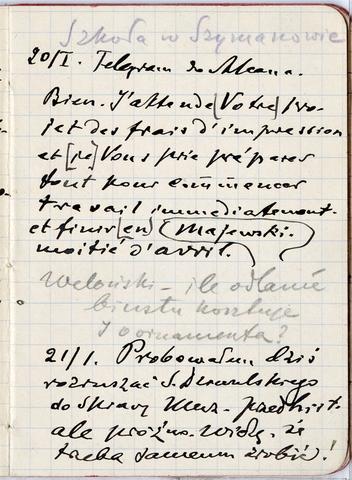 Szkoła w Szymanowie
20/I. Telegram do Alcana.
Bien. J'attends [Votre] pro-
jet des frais d'impression
et [je] Vous prie préparer
tout pour commencer
travail immédiatement.
et finir [en] Majewski.
moitié d'avril.
Weloński - ile odlanie
biustu kosztuje
i ornamenta?
21/I. Probowałem dziś
rozruszać S. Dziewulskiego
do sprawy Muz. przedhist.
ale próżno. Widzę, że
trzeba samemu zrobić!